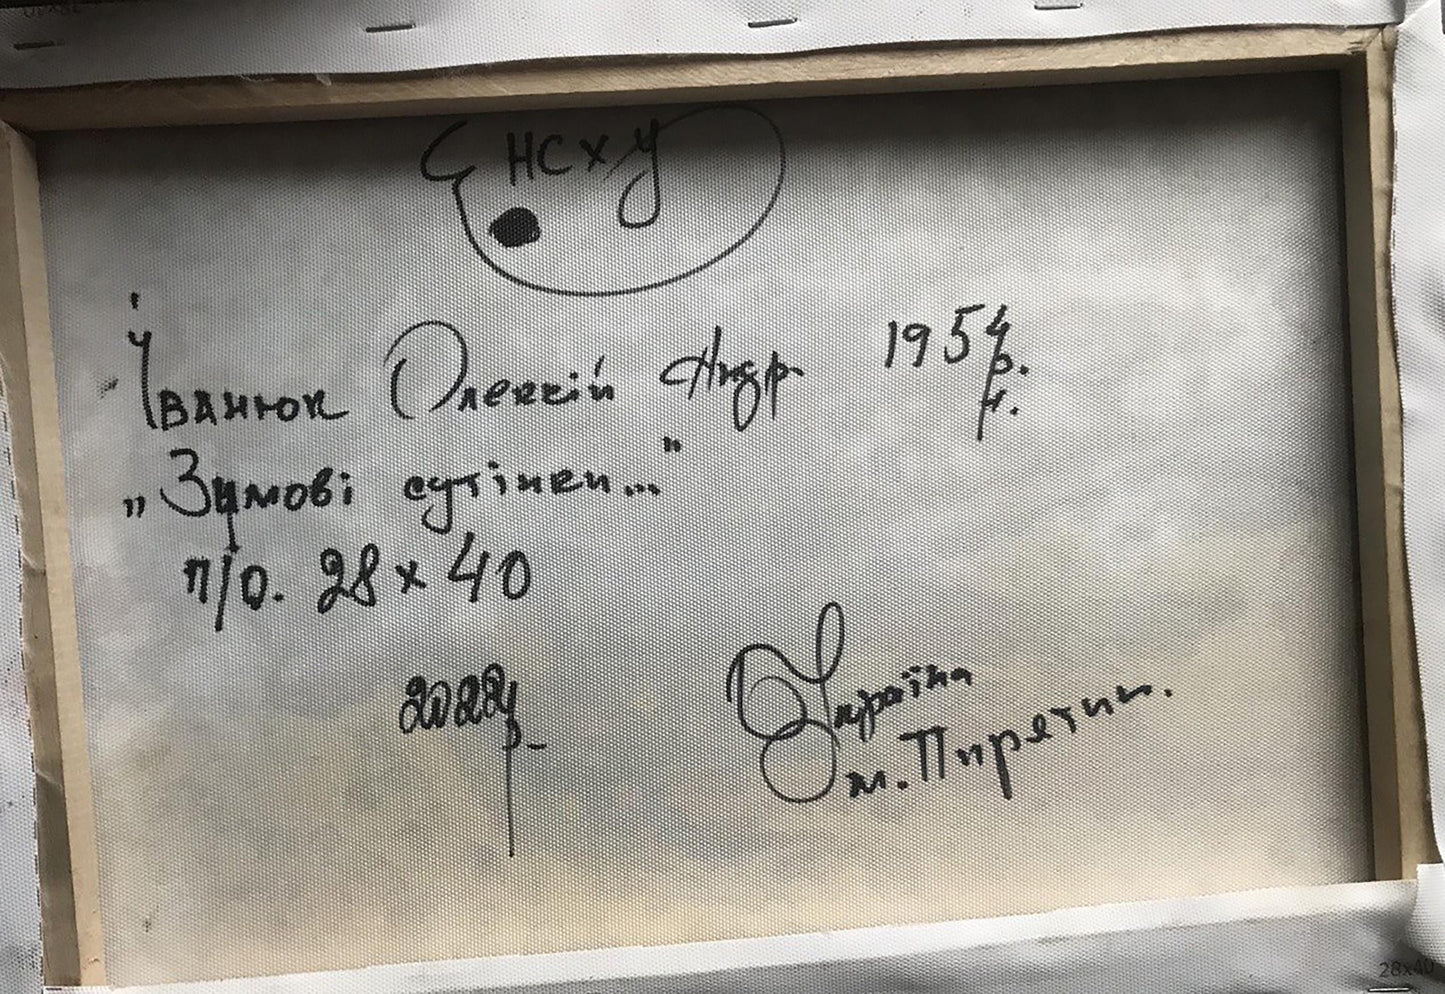 НСХУ
Іванюк Олексій Андр 1954 р.
н.
„Зимові сутінки..."
п/о. 28 x 40
2022 р
Україна
м. Пирятин.
28x40